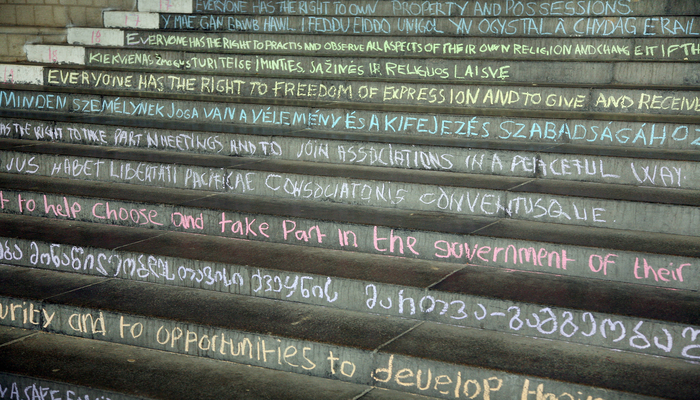 EVERYONE HAS THE RIGHT TO OWN PROPERTY AND POSSESSIONS.
Y MAE GAN BAWB HAWL I FEDDU EIDDO UNIGOL YN OGYSTAL Â CHYDAG ERAILL
EVERYONE HAS THE RIGHT TO PRACTIS AND OBSERVE ALL ASPECTS OF THEIR OWN RELIGION AND CHANGE IT IF
KIEKVIENAS ŽMOGUS TURI TEISĘ Į MINTIES, SĄŽINĖS IR RELIGIJOS LAISVĘ
EVERYONE HAS THE RIGHT TO FREEDOM OF EXPRESSION AND TO GIVE AND RECEIVE
MINDEN SZEMÉLYNEK JOGA VAN A VÉLEMÉNY ÉS A KIFEJEZÉS SZABADSAGÁHOZ
HAS THE RIGHT TO TAKE PART IN MEETINGS AND TO JOIN ASSOCIATIONS IN A PEACEFUL WAY.
JUS HABET LIBERTATI PACIFICAE CONSOCIATONIS CONVENTUSQUE.
t to help choose and take Part in the government of their
მონაწილეობდეს თავისი ქვეყნის მართვა-გამგეობაშ
urity and to opportunities to develop their
IN A SAFE